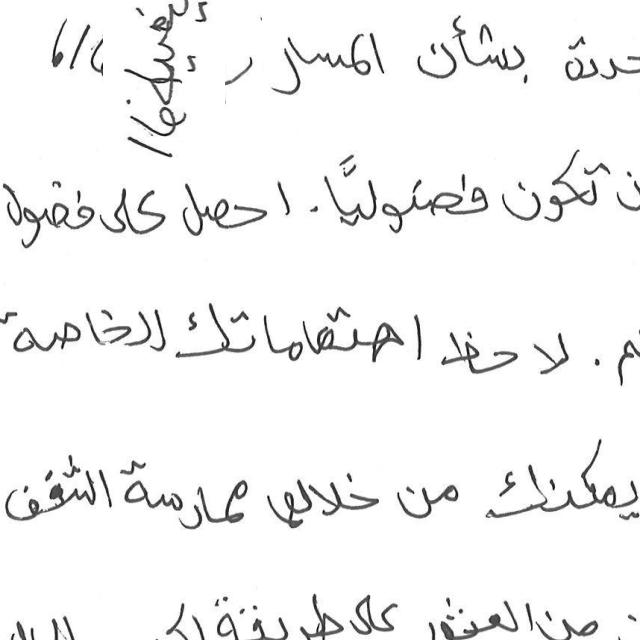 بشأن المسار
تكون فضوليًا. احصل على فضول
. لاحظ اهتماماتك الخاصة
يمكنك من خلالها ممارسة الشغف
من العثور على طريقة